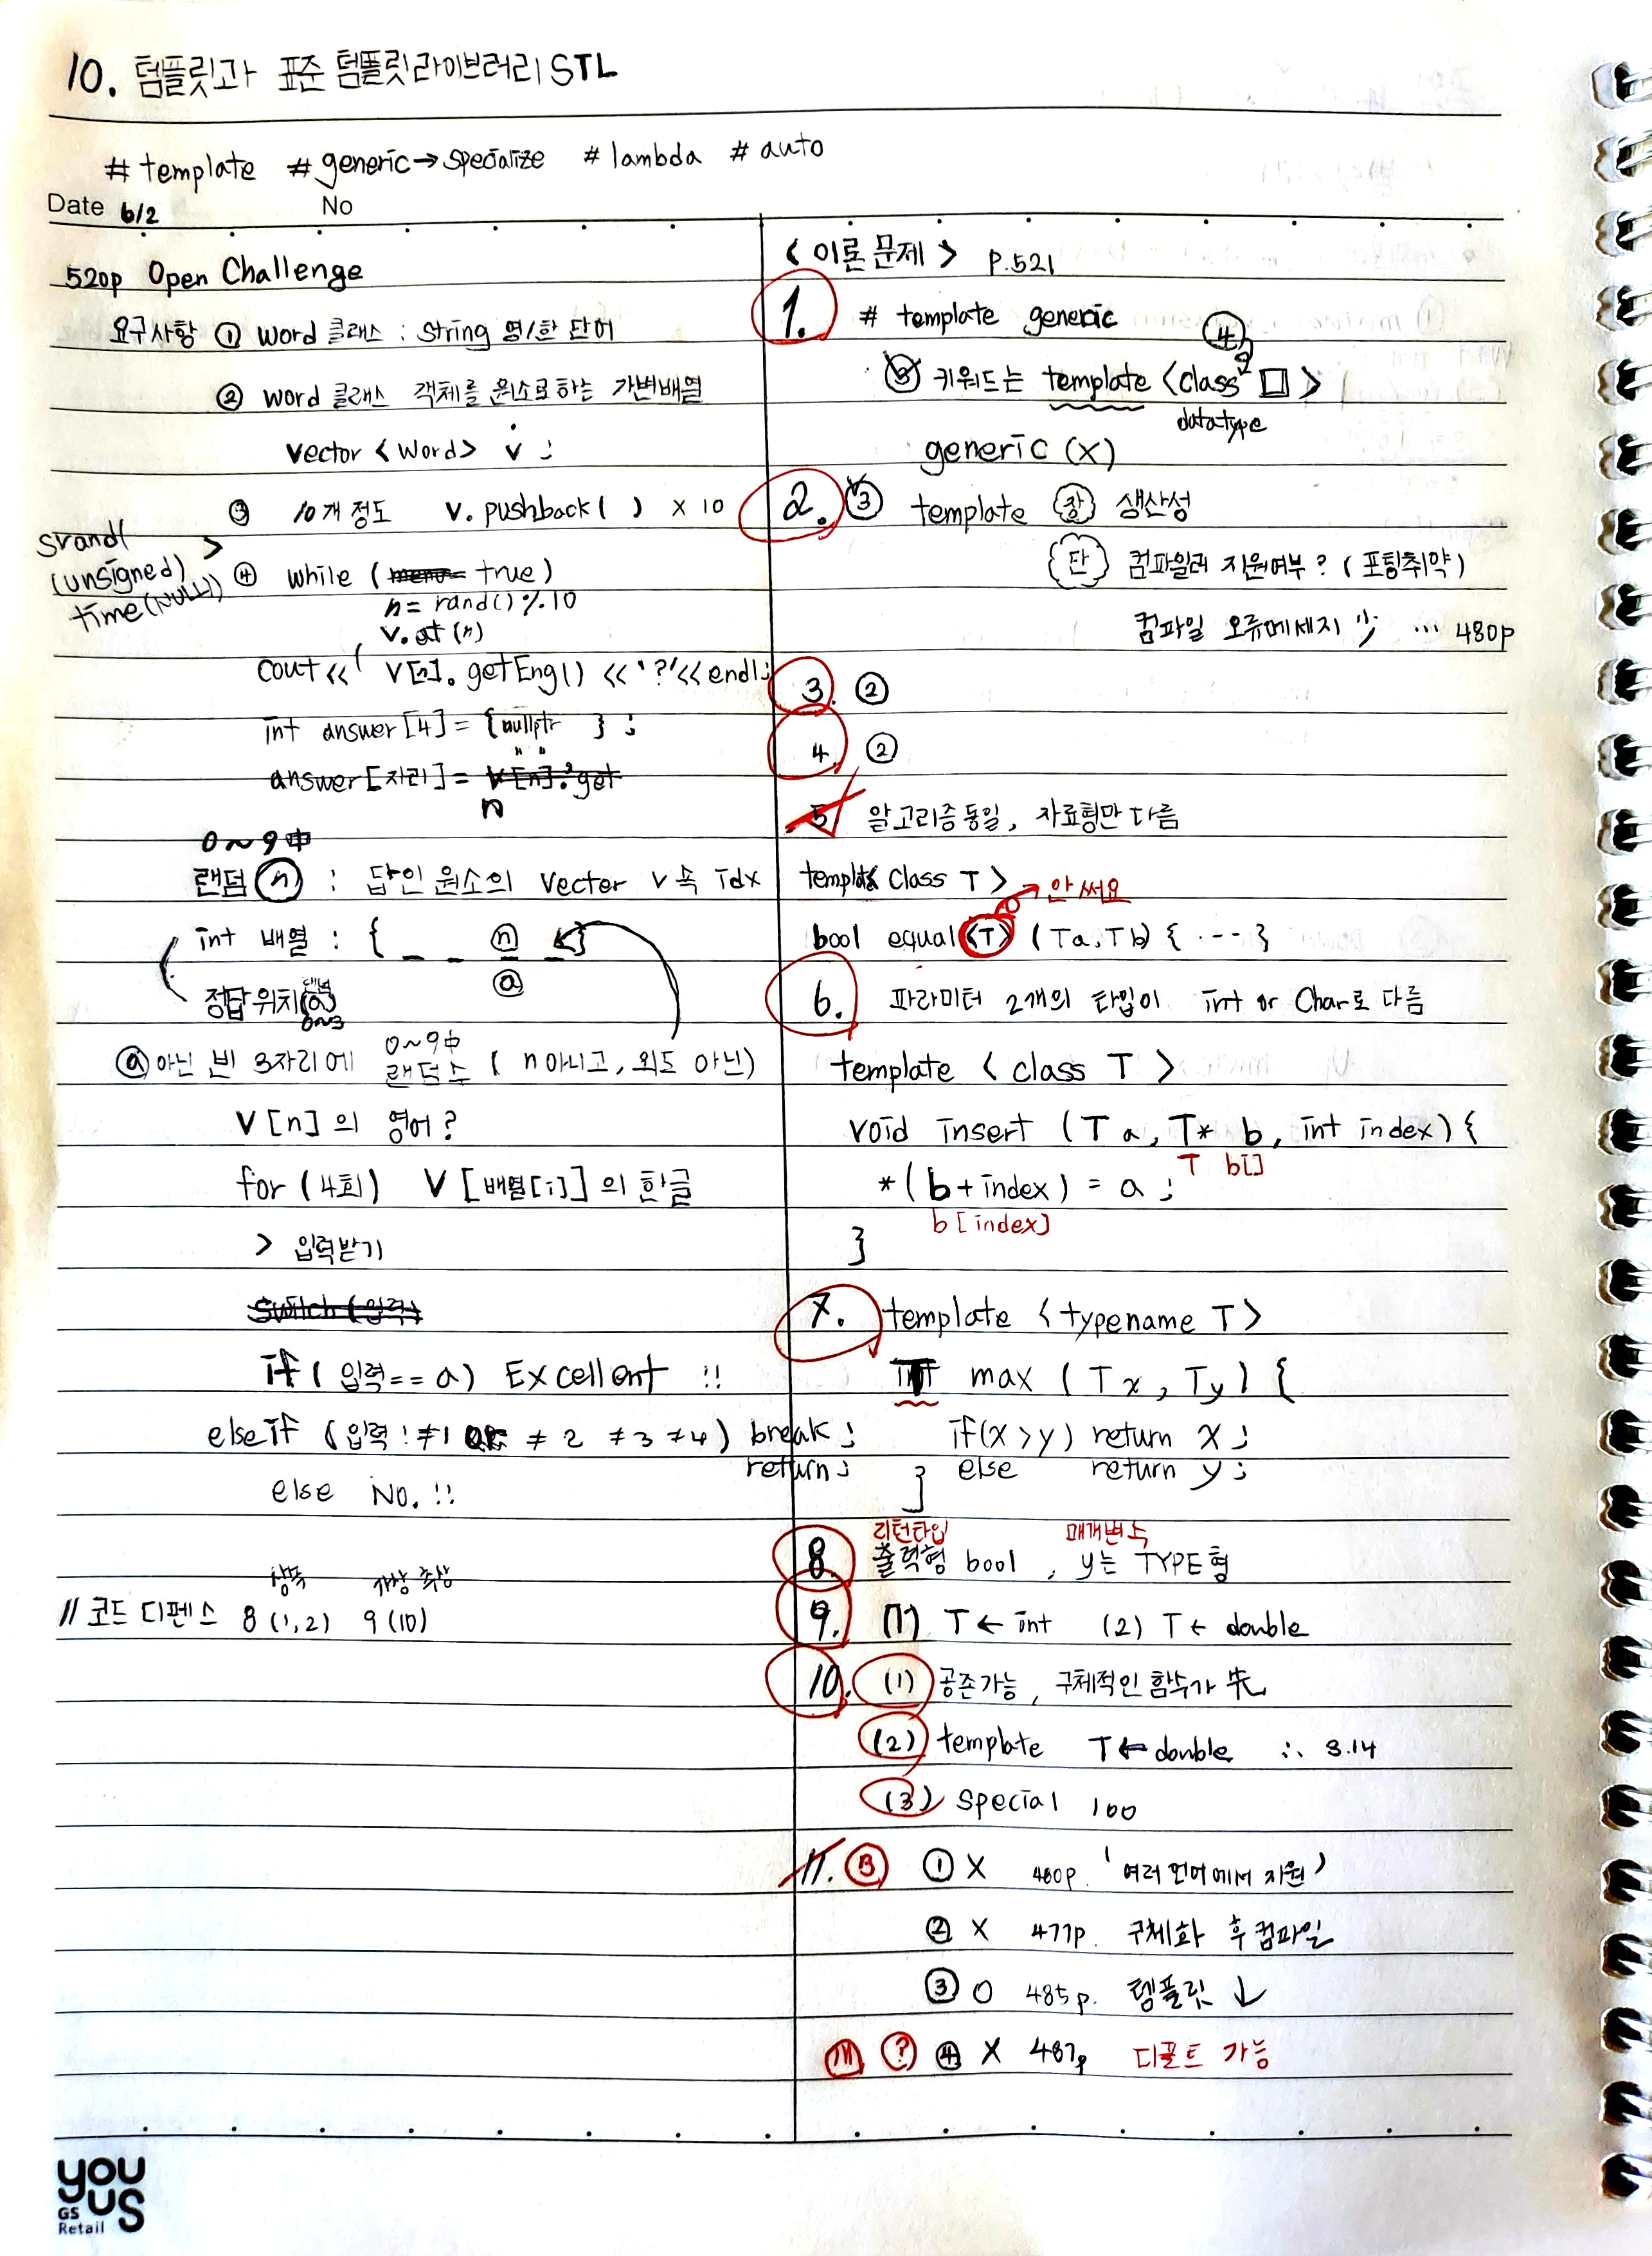 10. 텀플릿과 표준 텀플릿라이브러리 STL
# template # generic→specialize # lambda # auto
Date 6/2 No
520p Open Challenge
요구사항 ① Word 클래스 : String 영/한 단어
② Word 클래스 객체를 원소로하는 가변배열
vector <Word> v ;
③ 10개 정도 v. pushback( ) x 10
srand(
(unsigned)
time(NULL) >
④ while ( menu true)
n = rand() % 10
v.at(n)
cout << ( V[n]. getEng() << '?' << endl;
int answer[4] = {nullptr } ;
answer[자리] = v[n].get
n
0~9中
랜덤 ⓝ : 답인 원소의 Vector v 속 idx
int 배열 : { _ _ ⓝ _ }
ⓐ
정답위치 ⓐ 랜덤
0~3
ⓐ아닌 빈 3자리에 0~9中 랜덤수 ( n아니고, 외도 아닌)
V[n]의 영어?
for (4회) V[배열[i]]의 한글
> 입력받기
switch (입력)
if ( 입력 == a) Excellent !!
else if (입력 !≠1 or ≠2 ≠3 ≠4) break ;
return ;
else No. !!
상속 가상 추상
// 코드 디펜스 8 (1,2) 9 (10)
< 이론 문제 > P.521
1. # template generic
④
③ 키워드는 template <class □ >
datatype
generic (x)
2. ③ template 장 생산성
단 컴파일러 지원여부? ( 포팅취약)
컴파일 오류메세지 ... 480p
3. ②
4. ②
5. 알고리즘 동일, 자료형만 다름
template< class T >
→ 안 써요
bool equal <T> (T a, T b) { --- }
6. 파라미터 2개의 타입이 int or Char로 다름
template < class T >
void insert (T a, T* b, int index) {
T b[]
*( b + index ) = a ;
b [index]
}
7. template < typename T >
T max ( T x, T y ) {
if(x > y) return x ;
else return y ;
}
리턴타입 매개변수
8. 출력형 bool , y는 TYPE형
9. (1) T ← int (2) T ← double
10. (1) 공존가능, 구체적인 함수가 先
(2) template T ← double ∴ 3.14
(3) special 100
11. B ① X 480p. '여러 언어에서 지원)
② X 477p. 구체화 후 컴파일
③ O 485p. 템플릿 ↓
? ④ X 487p 디폴트 가능
YOU
US
GS
Retail